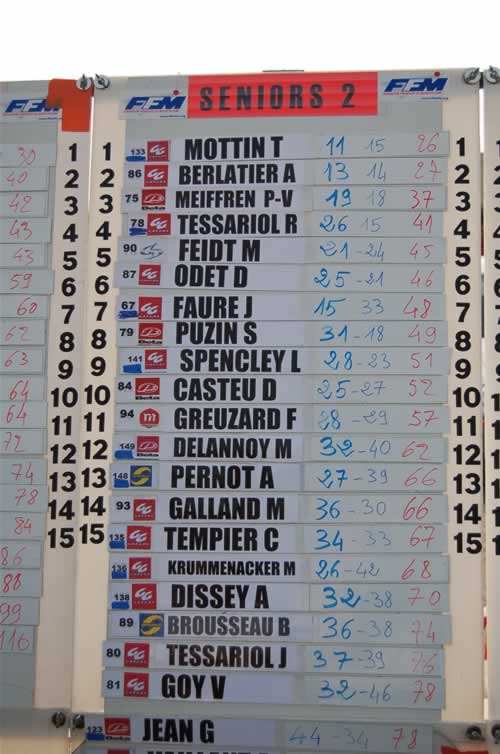 FFM SENIORS 2 FFM
1 133 MOTTIN T 11 15 26 1
2 86 BERLATIER A 13 14 27 2
3 75 Beta MEIFFREN P-V 19 18 37 3
4 78 TESSARIOL R 26 15 41 4
5 90 FEIDT M 21-24 45 5
6 87 ODET D 25-21 46 6
7 67 FAURE J 15 33 48 7
8 79 Beta PUZIN S 31-18 49 8
9 141 SPENCLEY L 28-23 51 9
10 84 Beta CASTEU D 25-27 52 10
11 94 GREUZARD F 28-29 57 11
12 149 Beta DELANNOY M 32-40 62 12
13 148 PERNOT A 27-39 66 13
14 93 GALLAND M 36-30 66 14
15 135 TEMPIER C 34-33 67 15
136 KRUMMENACKER M 26-42 68
138 DISSEY A 32-38 70
89 BROUSSEAU B 36-38 74
80 TESSARIOL J 37-39 76
81 GOY V 32-46 78
123 Beta JEAN G 44-34 78
FFM
30 1
40 2
42 3
43 4
43 5
59 6
60 7
62 8
63 9
64 10
64 11
72 12
74 13
78 14
84 15
86
88
99
116